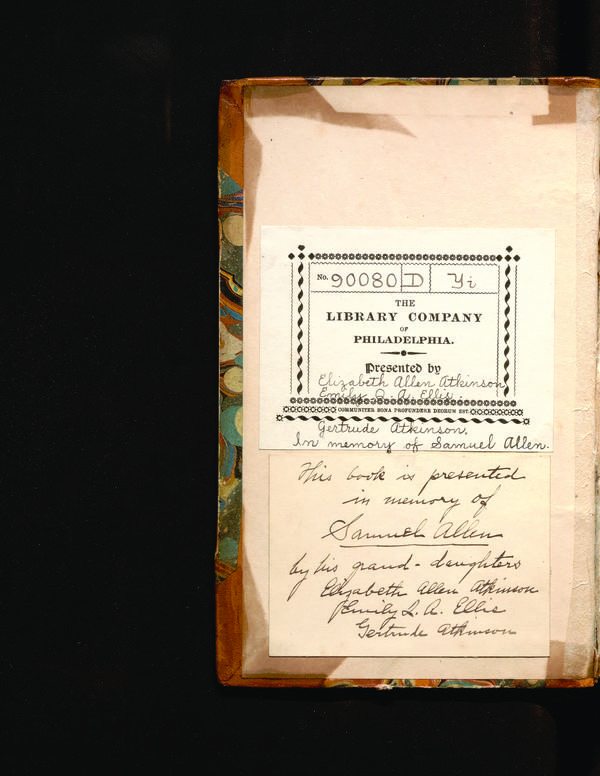 No. 90080 D Yi
THE
LIBRARY COMPANY
OF
PHILADELPHIA.
Presented by
Elizabeth Allen Atkinson
Emily Q. A. Ellis.
COMMUNITER BONA PROFUNDERE DEORUM EST.
Gertrude Atkinson.
In memory of Samuel Allen.
This book is presented
in memory of
Samuel Allen
by his grand-daughters
Elizabeth Allen Atkinson
Emily Q. A. Ellis
Gertrude Atkinson